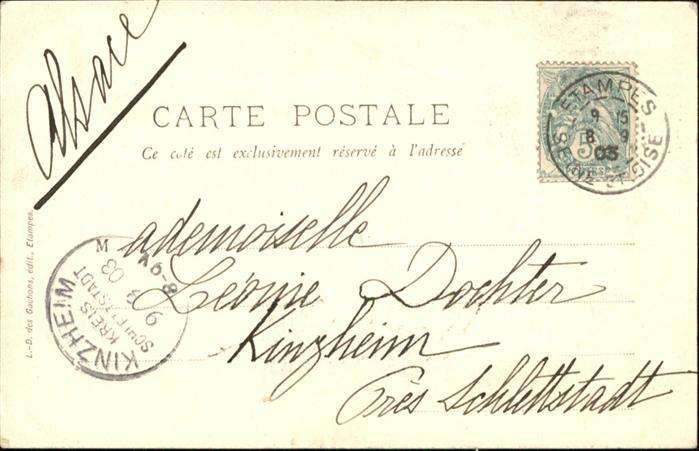 Alsace
CARTE POSTALE
Ce coté est exclusivement réservé à l'adresse
ETAMPES
9 15
8 9
03
SEINE ET OISE
Mademoiselle
Léonie Dochter
Kinzheim
Près Schlettstadt
KINZHEIM
KREIS
SCHLETTSTADT
9 03
8-9 V
L.-D. des Gachons, édit., Etampes.